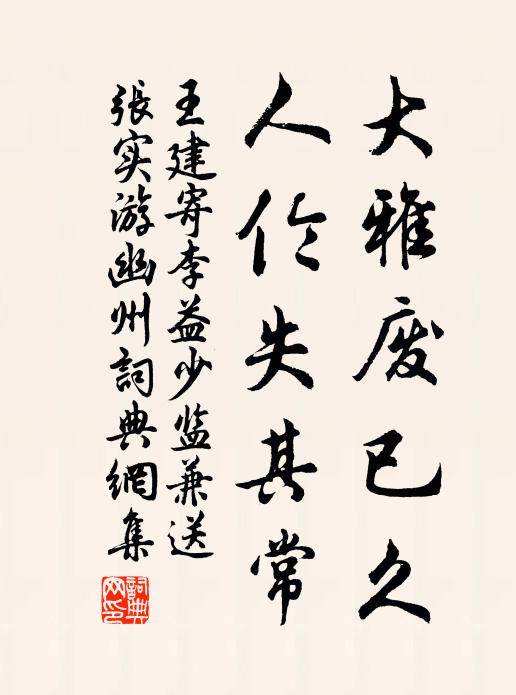 大雅废已久
人伦失其常
王建寄李益少监兼送
张实游幽州詞典網集
詞典网印